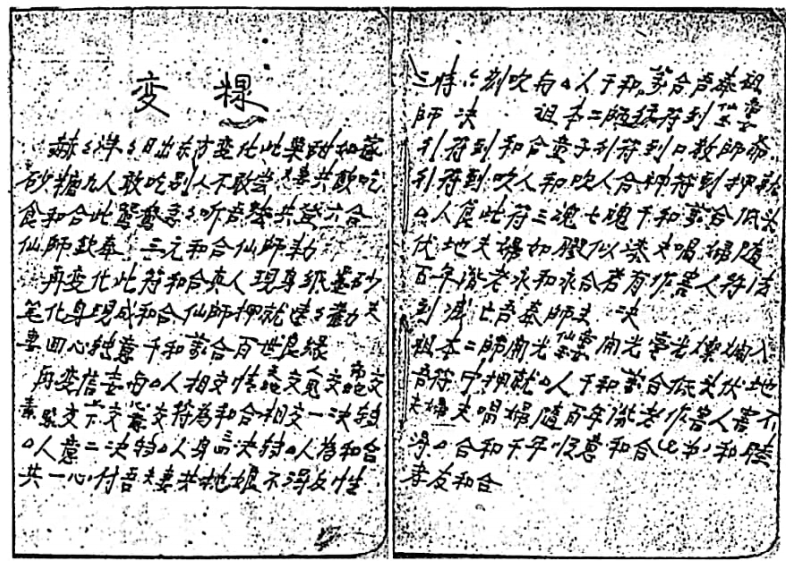 变粿
赫々洋々日出东方变化此粿甜如蔗
砂糖九人敢吃别人不敢尝夫妻共飲吃
食和合此鸳鸯急々吩吾弦共登六合
仙师敕奉 三元和合仙师勅
再变化此符和合真人現身纸墨砂
笔化身現成和合仙师押就速々勸夫
妻回心转意千和萬合百世良缘
再变信专吩△人相交情 交 交 交
交下交 交符為和合相交一决转
△人意二决转△人身三决转△人為和合
共一心付吾夫妻共她娘不得反性
三時六刻吹吩△人千和萬合吾奉祖
师决 祖本二师 符到仙
引符到和合童子引符到口教师爺
引符到吹人和吹人合神符到押就
△人食此符三魂七魄千和萬合低头
伏地夫婦如膠似漆夫唱婦隨
百年偕老永和永合若有作害人符法
到滅亡吾奉师主 决
祖本二师開光仙 開光毫光燦爛入
吾符中押就△人千和萬合低头伏地
夫婦夫唱婦隨百年偕老作害人害不
得△合和千年順意和合 和睦
孝友和合